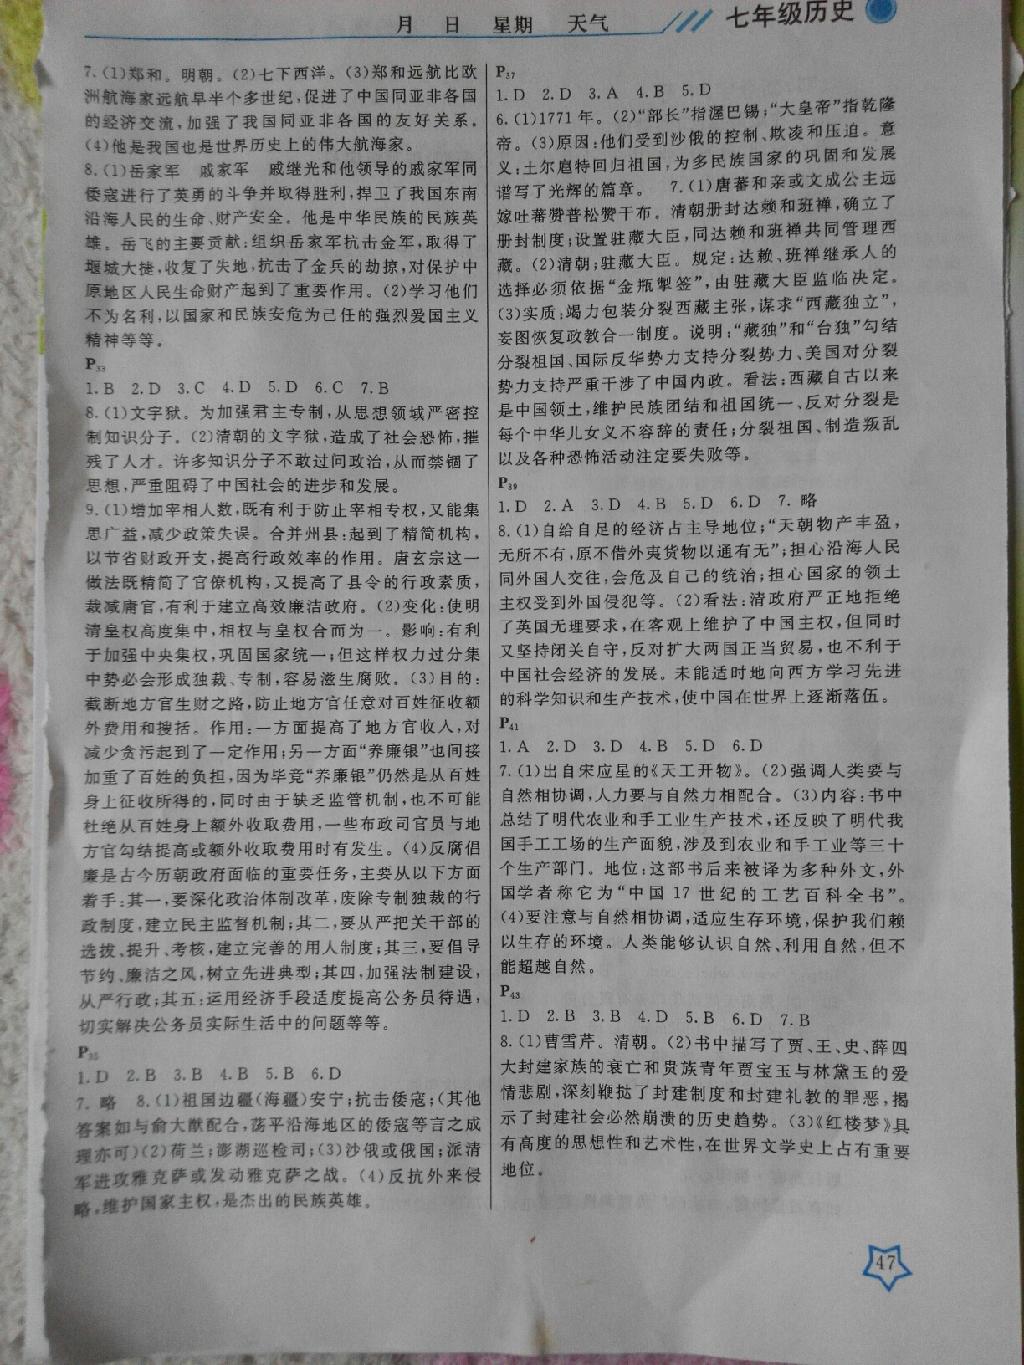 月 日 星期 天气
七年级历史
7.(1)郑和。明朝。(2)七下西洋。(3)郑和远航比欧
洲航海家远航早半个多世纪,促进了中国同亚非各国
的经济交流,加强了我国同亚非各国的友好关系。
(4)他是我国也是世界历史上的伟大航海家。
8.(1)岳家军 戚家军 戚继光和他领导的戚家军同
倭寇进行了英勇的斗争并取得胜利,捍卫了我国东南
沿海人民的生命、财产安全。他是中华民族的民族英
雄。岳飞的主要贡献:组织岳家军抗击金军,取得了
堰城大捷,收复了失地,抗击了金兵的劫掠,对保护中
原地区人民生命财产起到了重要作用。(2)学习他们
不为名利,以国家和民族安危为己任的强烈爱国主义
精神等等。
P33
1.B 2.D 3.C 4.D 5.D 6.C 7.B
8.(1)文字狱。为加强君主专制,从思想领域严密控
制知识分子。(2)清朝的文字狱,造成了社会恐怖,摧
残了人才。许多知识分子不敢过问政治,从而禁锢了
思想,严重阻碍了中国社会的进步和发展。
9.(1)增加宰相人数,既有利于防止宰相专权,又能集
思广益,减少政策失误。合并州县:起到了精简机构,
以节省财政开支,提高行政效率的作用。唐玄宗这一
做法既精简了官僚机构,又提高了县令的行政素质,
裁减唐官,有利于建立高效廉洁政府。(2)变化:使明
清皇权高度集中,相权与皇权合而为一。影响:有利
于加强中央集权,巩固国家统一;但这样权力过分集
中势必会形成独裁、专制,容易滋生腐败。(3)目的:
截断地方官生财之路,防止地方官任意对百姓征收额
外费用和搜括。作用:一方面提高了地方官收入,对
减少贪污起到了一定作用;另一方面“养廉银”也间接
加重了百姓的负担,因为毕竟“养廉银”仍然是从百姓
身上征收所得的,同时由于缺乏监管机制,也不可能
杜绝从百姓身上额外收取费用,一些布政司官员与地
方官勾结提高或额外收取费用时有发生。(4)反腐倡
廉是古今历朝政府面临的重要任务,主要从以下方面
着手:其一,要深化政治体制改革,废除专制独裁的行
政制度,建立民主监督机制;其二,要从严把关干部的
选拔、提升、考核,建立完善的用人制度;其三,要倡导
节约、廉洁之风,树立先进典型;其四,加强法制建设,
从严行政;其五:运用经济手段适度提高公务员待遇,
切实解决公务员实际生活中的问题等等。
P35
1.D 2.B 3.B 4.B 5.B 6.D
7.略 8.(1)祖国边疆(海疆)安宁;抗击倭寇;(其他
答案如与俞大猷配合,荡平沿海地区的倭寇等言之成
理亦可)(2)荷兰;澎湖巡检司;(3)沙俄或俄国;派清
军进攻雅克萨或发动雅克萨之战。(4)反抗外来侵
略,维护国家主权,是杰出的民族英雄。
P37
1.D 2.D 3.A 4.B 5.D
6.(1)1771年。(2)“部长”指渥巴锡;“大皇帝”指乾隆
帝。(3)原因:他们受到沙俄的控制、欺凌和压迫。意
义:土尔扈特回归祖国,为多民族国家的巩固和发展
谱写了光辉的篇章。 7.(1)唐蕃和亲或文成公主远
嫁吐蕃赞普松赞干布。清朝册封达赖和班禅,确立了
册封制度;设置驻藏大臣,同达赖和班禅共同管理西
藏。(2)清朝;驻藏大臣。规定:达赖、班禅继承人的
选择必须依据“金瓶掣签”,由驻藏大臣监临决定。
(3)实质:竭力包装分裂西藏主张,谋求“西藏独立”,
妄图恢复政教合一制度。说明:“藏独”和“台独”勾结
分裂祖国、国际反华势力支持分裂势力、美国对分裂
势力支持严重干涉了中国内政。看法:西藏自古以来
是中国领土,维护民族团结和祖国统一、反对分裂是
每个中华儿女义不容辞的责任;分裂祖国、制造叛乱
以及各种恐怖活动注定要失败等。
P39
1.D 2.A 3.D 4.B 5.D 6.D 7.略
8.(1)自给自足的经济占主导地位;“天朝物产丰盈,
无所不有,原不借外夷货物以通有无”;担心沿海人民
同外国人交往,会危及自己的统治;担心国家的领土
主权受到外国侵犯等。(2)看法:清政府严正地拒绝
了英国无理要求,在客观上维护了中国主权,但同时
又坚持闭关自守,反对扩大两国正当贸易,也不利于
中国社会经济的发展。未能适时地向西方学习先进
的科学知识和生产技术,使中国在世界上逐渐落伍。
P41
1.A 2.D 3.D 4.B 5.D 6.D
7.(1)出自宋应星的《天工开物》。(2)强调人类要与
自然相协调,人力要与自然力相配合。(3)内容:书中
总结了明代农业和手工业生产技术,还反映了明代我
国手工工场的生产面貌,涉及到农业和手工业等三十
个生产部门。地位:这部书后来被译为多种外文,外
国学者称它为“中国17世纪的工艺百科全书”。
(4)要注意与自然相协调,适应生存环境,保护我们赖
以生存的环境。人类能够认识自然、利用自然,但不
能超越自然。
P43
1.D 2.B 3.B 4.D 5.B 6.D 7.B
8.(1)曹雪芹。清朝。(2)书中描写了贾、王、史、薛四
大封建家族的衰亡和贵族青年贾宝玉与林黛玉的爱
情悲剧,深刻鞭挞了封建制度和封建礼教的罪恶,揭
示了封建社会必然崩溃的历史趋势。(3)《红楼梦》具
有高度的思想性和艺术性,在世界文学史上占有重要
地位。
47